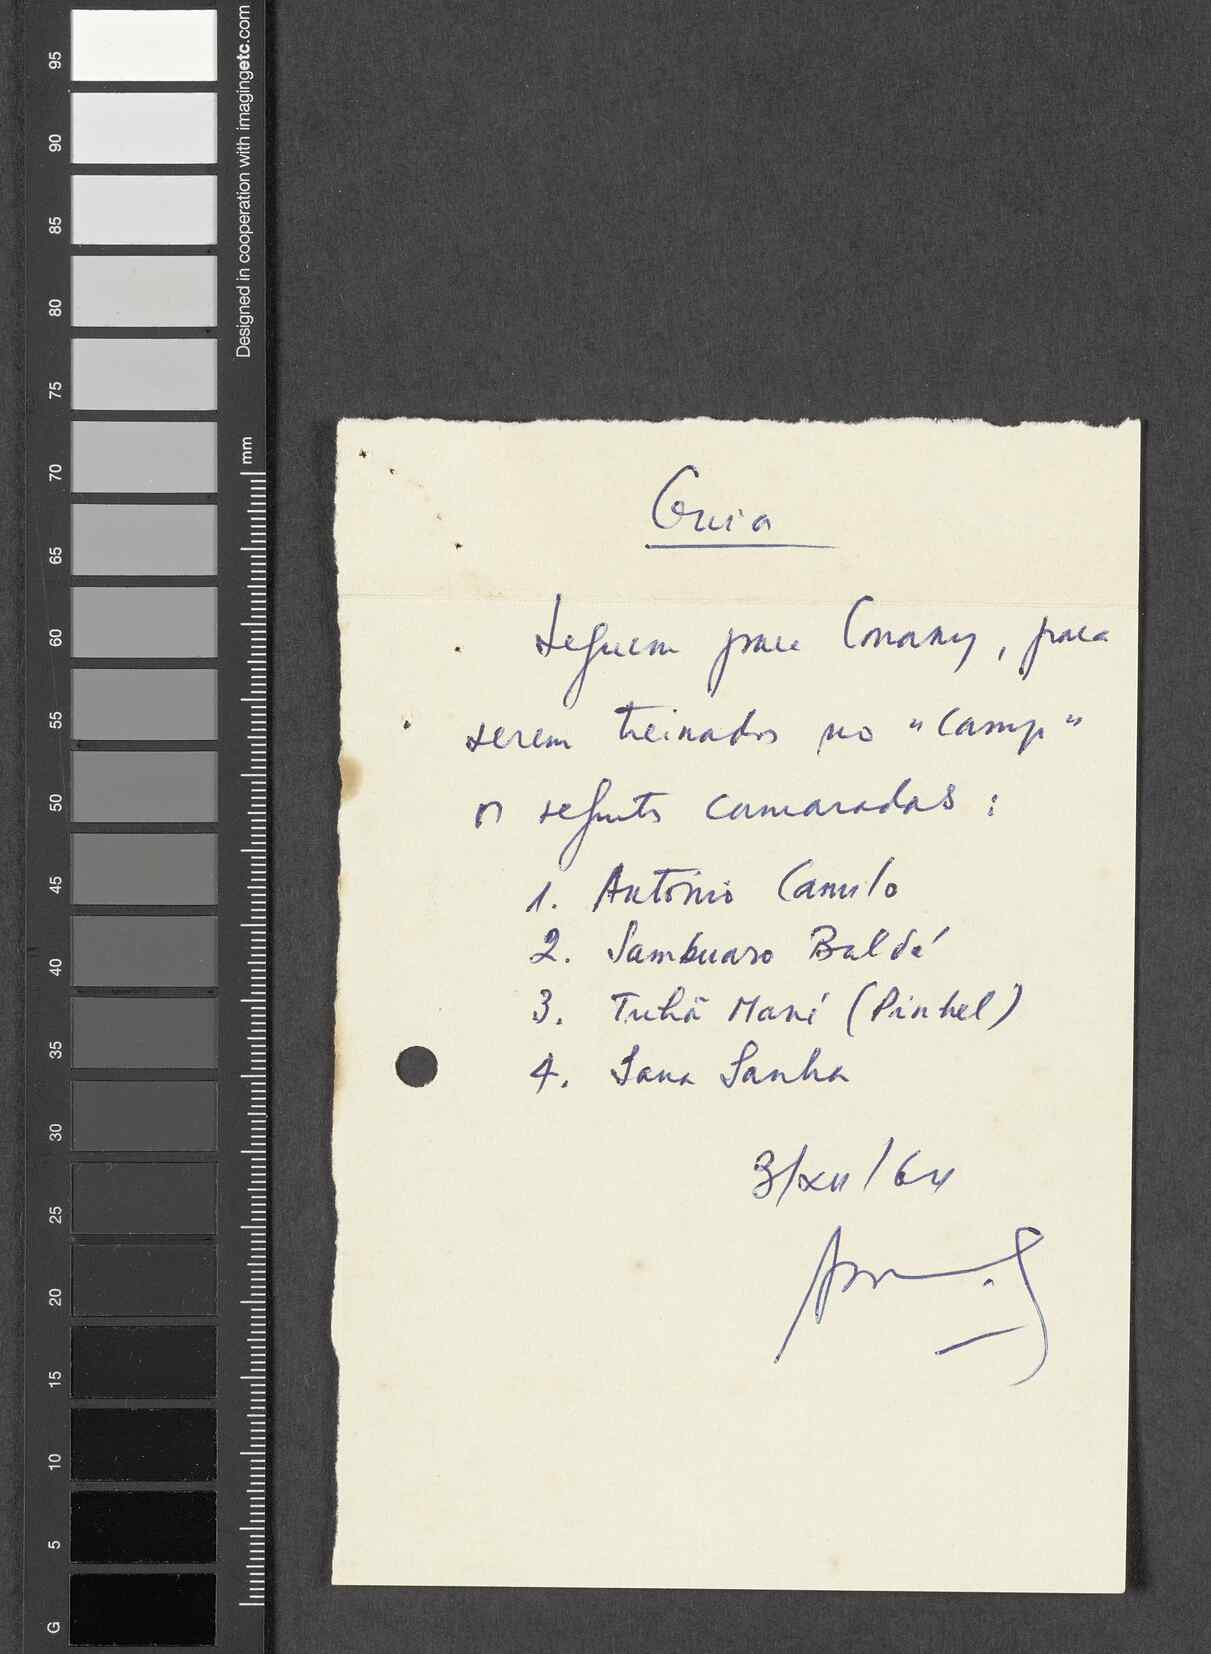 Guia
Seguem para Conakry, para
serem treinados no "Camp"
os seguints camaradas :
1. António Camilo
2. Sambuaro Baldé
3. Tuhã Mané (Pinhel)
4. Sana Sanha
3/XII/64
95
90
85
80
75
70
65
60
55
50
45
40
35
30
25
20
15
10
5
G
Designed in cooperation with imagingetc.com
mm